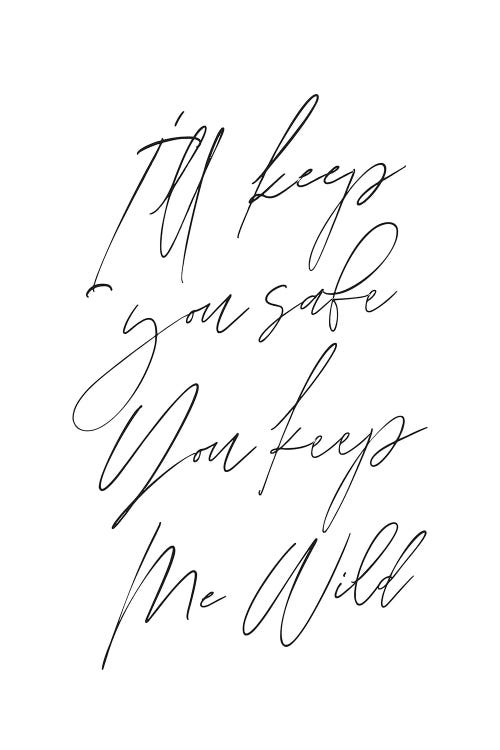 I'll keep
you safe
You keep
Me Wild